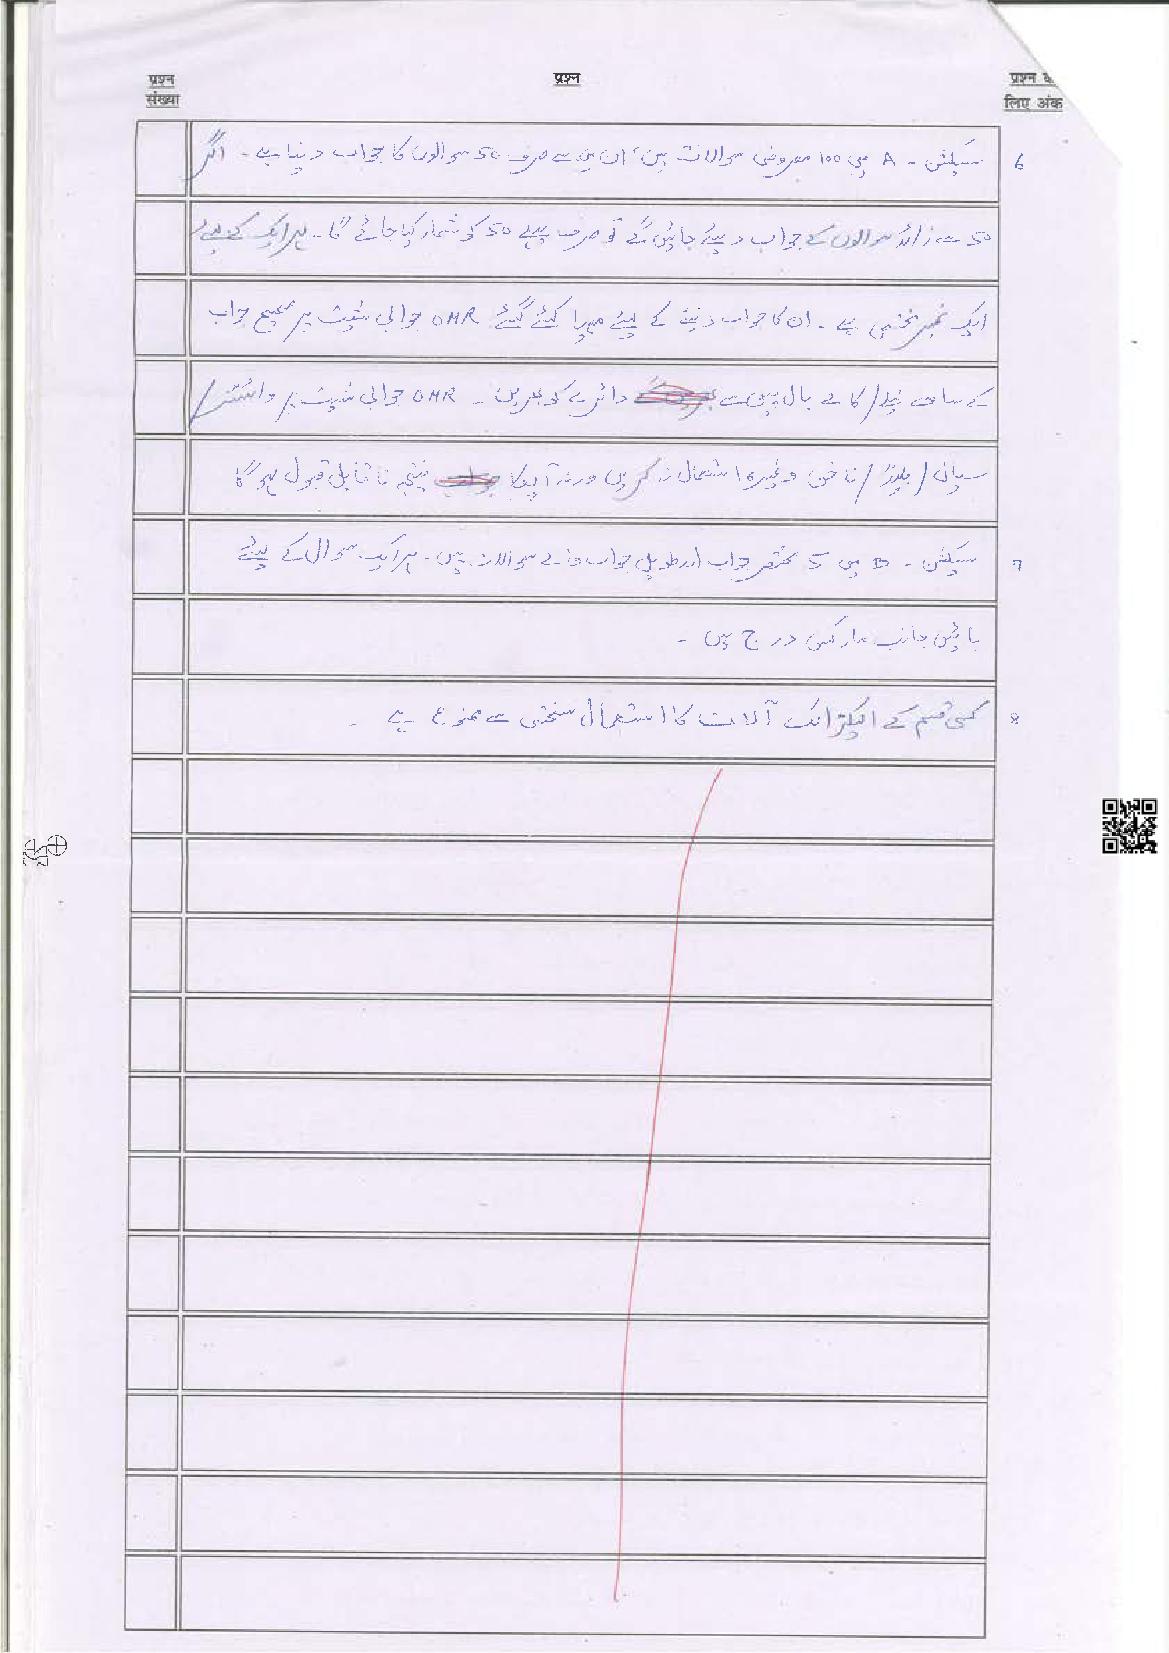 प्रश्न संख्या
प्रश्न
प्रश्न के लिए अंक
6 سیکشن - A میں 100 معروضی سوالات ہیں، ان میں سے صرف 50 سوالوں کا جواب دینا ہے - اگر
50 سے زائد سوالوں کے جواب دیئے جائیں گے تو صرف پہلے 50 کو شمار کیا جائے گا - ہر ایک کے لیے
ایک نمبر مختص ہے - ان کا جواب دینے کے لیئے مہیا کئے گئے OMR جوابی شیٹ پر صحیح جواب
کے سامنے نیلے / کالے بال پین سے دائرے کو بھریں - OMR جوابی شیٹ پر وائٹنر /
سیال / بلیڈ / ناخن وغیرہ استعمال نہ کریں ورنہ آپکا نتیجہ ناقابل قبول ہوگا
7 سیکشن - B میں 5 مختصر جواب اور طویل جواب والے سوالات ہیں - ہر ایک سوال کے لیئے
بائیں جانب مارکس درج ہیں -
8 کسی قسم کے الیکٹرانک آلات کا استعمال سختی سے ممنوع ہے -